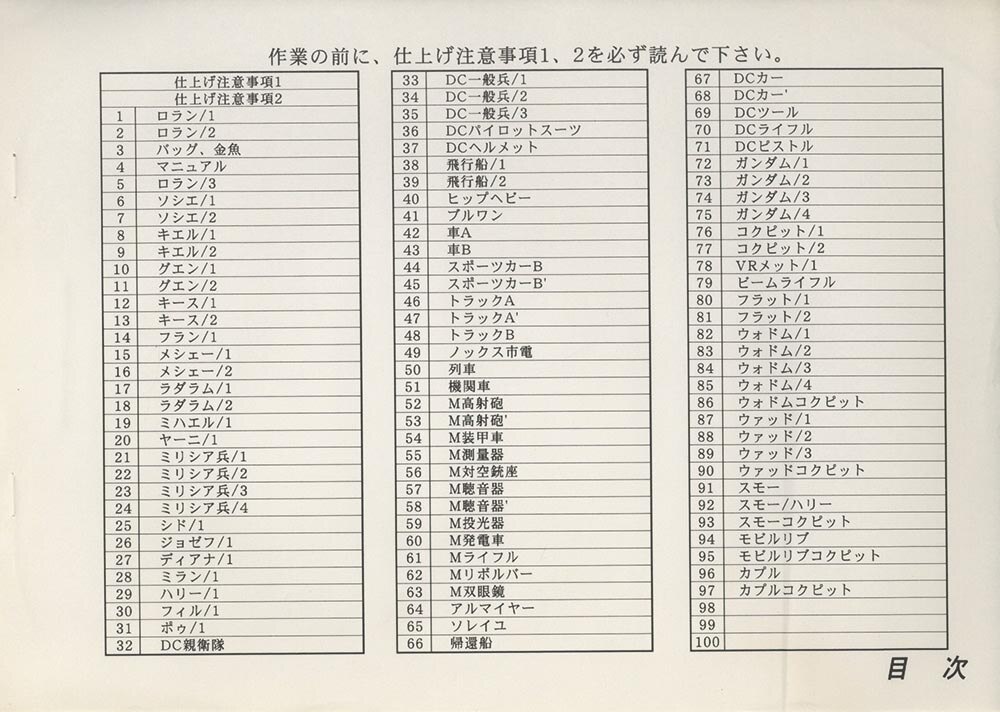 作業の前に、仕上げ注意事項1、2を必ず読んで下さい。
仕上げ注意事項1
仕上げ注意事項2
1 ロラン/1
2 ロラン/2
3 バッグ、金魚
4 マニュアル
5 ロラン/3
6 ソシエ/1
7 ソシエ/2
8 キエル/1
9 キエル/2
10 グエン/1
11 グエン/2
12 キース/1
13 キース/2
14 フラン/1
15 メシェー/1
16 メシェー/2
17 ラダラム/1
18 ラダラム/2
19 ミハエル/1
20 ヤーニ/1
21 ミリシア兵/1
22 ミリシア兵/2
23 ミリシア兵/3
24 ミリシア兵/4
25 シド/1
26 ジョゼフ/1
27 ディアナ/1
28 ミラン/1
29 ハリー/1
30 フィル/1
31 ポゥ/1
32 DC親衛隊
33 DC一般兵/1
34 DC一般兵/2
35 DC一般兵/3
36 DCパイロットスーツ
37 DCヘルメット
38 飛行船/1
39 飛行船/2
40 ヒップヘビー
41 ブルワン
42 車A
43 車B
44 スポーツカーB
45 スポーツカーB'
46 トラックA
47 トラックA'
48 トラックB
49 ノックス市電
50 列車
51 機関車
52 M高射砲
53 M高射砲'
54 M装甲車
55 M測量器
56 M対空銃座
57 M聴音器
58 M聴音器'
59 M投光器
60 M発電車
61 Mライフル
62 Mリボルバー
63 M双眼鏡
64 アルマイヤー
65 ソレイユ
66 帰還船
67 DCカー
68 DCカー'
69 DCツール
70 DCライフル
71 DCピストル
72 ガンダム/1
73 ガンダム/2
74 ガンダム/3
75 ガンダム/4
76 コクピット/1
77 コクピット/2
78 VRメット/1
79 ビームライフル
80 フラット/1
81 フラット/2
82 ウォドム/1
83 ウォドム/2
84 ウォドム/3
85 ウォドム/4
86 ウォドムコクピット
87 ウァッド/1
88 ウァッド/2
89 ウァッド/3
90 ウァッドコクピット
91 スモー
92 スモー/ハリー
93 スモーコクピット
94 モビルリブ
95 モビルリブコクピット
96 カプル
97 カプルコクピット
98
99
100
目 次